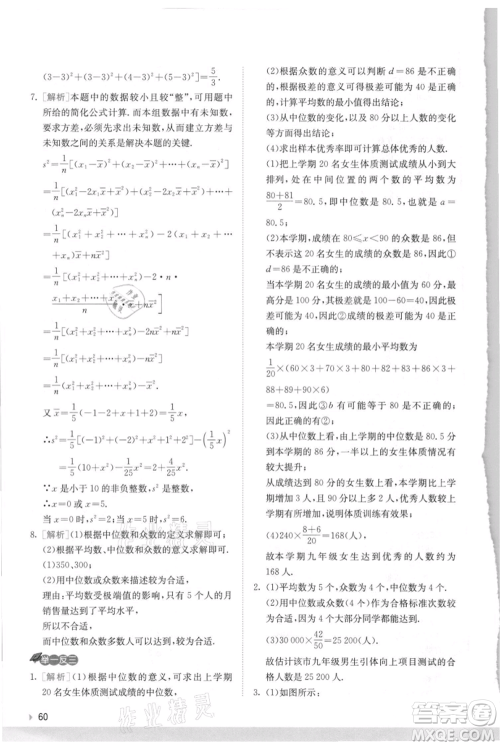 (3-3)²+(3-3)²+(2-3)²+(5-3)²]=5/3.
7. [解析] 本题中的数据较小且较“整”,可用题中
所给的简化公式计算.而本组数据中有未知
数,必须先求出未知数,弄清方差与未知数和
未知数之间的关系是解决本题的关键.
s²=1/n[(x₁-x̄)²+(x₂-x̄)²+…+(xₙ-x̄)²]
=1/n[(x₁²-2x₁x̄+x̄²)+(x₂²-2x₂x̄+x̄²)+…
+(xₙ²-2xₙx̄+x̄²)]
=1/n[(x₁²+x₂²+…+xₙ²)-2(x₁+x₂+…+
xₙ)x̄+nx̄²]
=1/n[(x₁²+x₂²+…+xₙ²)-2·n·
(x₁+x₂+…+xₙ)/n·x̄+nx̄²]
=1/n[(x₁²+x₂²+…+xₙ²)-2nx̄²+nx̄²]
=1/n[(x₁²+x₂²+…+xₙ²)-nx̄²].
又∵x̄=1/5(-1-2+1+2+x)=1/5x,
∴s²=1/5(1+4+1+4+x²)-(1/5x)²
=1/5(10+x²)-1/25x²=2+4/25x².
∵x是小于10的非负整数,且s²是整数,
∴x=0或x=5.
当x=0时,s²=2;当x=5时,s²=6.
8. [解析] (1)根据中位数和众数的定义求解即可;
(2)根据平均数、中位数和众数的意义求解即可.
(1)350,300;
(2)用中位数或众数来描述更为恰当.
理由:平均数受极端值的影响,只有3个人达到
了这个平均水平,
所以不合适,
而中位数和众数多数人可以达到,较为合适.
举一反三
1. [解析] (1)根据中位数的意义,可求出上学期
20名女生体质测试成绩的中位数,
60
(2)根据众数的意义可以判断d=86是否正
确,根据极差可能为40,可得出最小值为60分,
计算平均数的最小值得出结论;
(3)从中位数的变化,以及80分以上人数的变
化得出结论;
(4)求出样本优秀率即可估计总体优秀人数.
(1)把上学期20名女生体质测试成绩从小到大
排列,处在中间位置的两个数的平均数为
(80+81)/2=80.5,因此中位数是80.5,即a=
80.5;
(2)本学期,成绩在80≤x<90的众数是86,但
不表示这20名女生成绩的众数是86,因此①
d=86是不正确的;
当本学期20名女生成绩的最小值为60分,最
大值为100分时,其极差就是100-60=40,极
差可能为40,因此②成绩的极差可能为40是正
确的;
本学期20名女生成绩的最小平均数为
1/20×(60×3+70×3+80×3+83+86×3+
88+89+90×6)
=80.5,
因此③b有可能等于80.是不正确的.
故答案为②;
(3)从中位数上看,由上学期的中位数是80.5
分到本学期的86分,一半以上的女生体质有较
大提升;
从80分以上的人数上看,本学期比上学期有较
大增加,说明体质训练有效果;
(4)240×(8+6)/20=168(人),
故本学期九年级女生达到优秀的人数约为
168人.
2. (1)平均数为5个,众数为4个,中位数为5个.
(2)用中位数或众数(5个或4个)作为合格标准
次数较为合适,因为4或5大部分同学都能达到.
(3)30 000×42/50=25 200(人).
故估计该市九年级男生引体向上项目测试的合
格人数是25 200.
3. (1)如图所示: